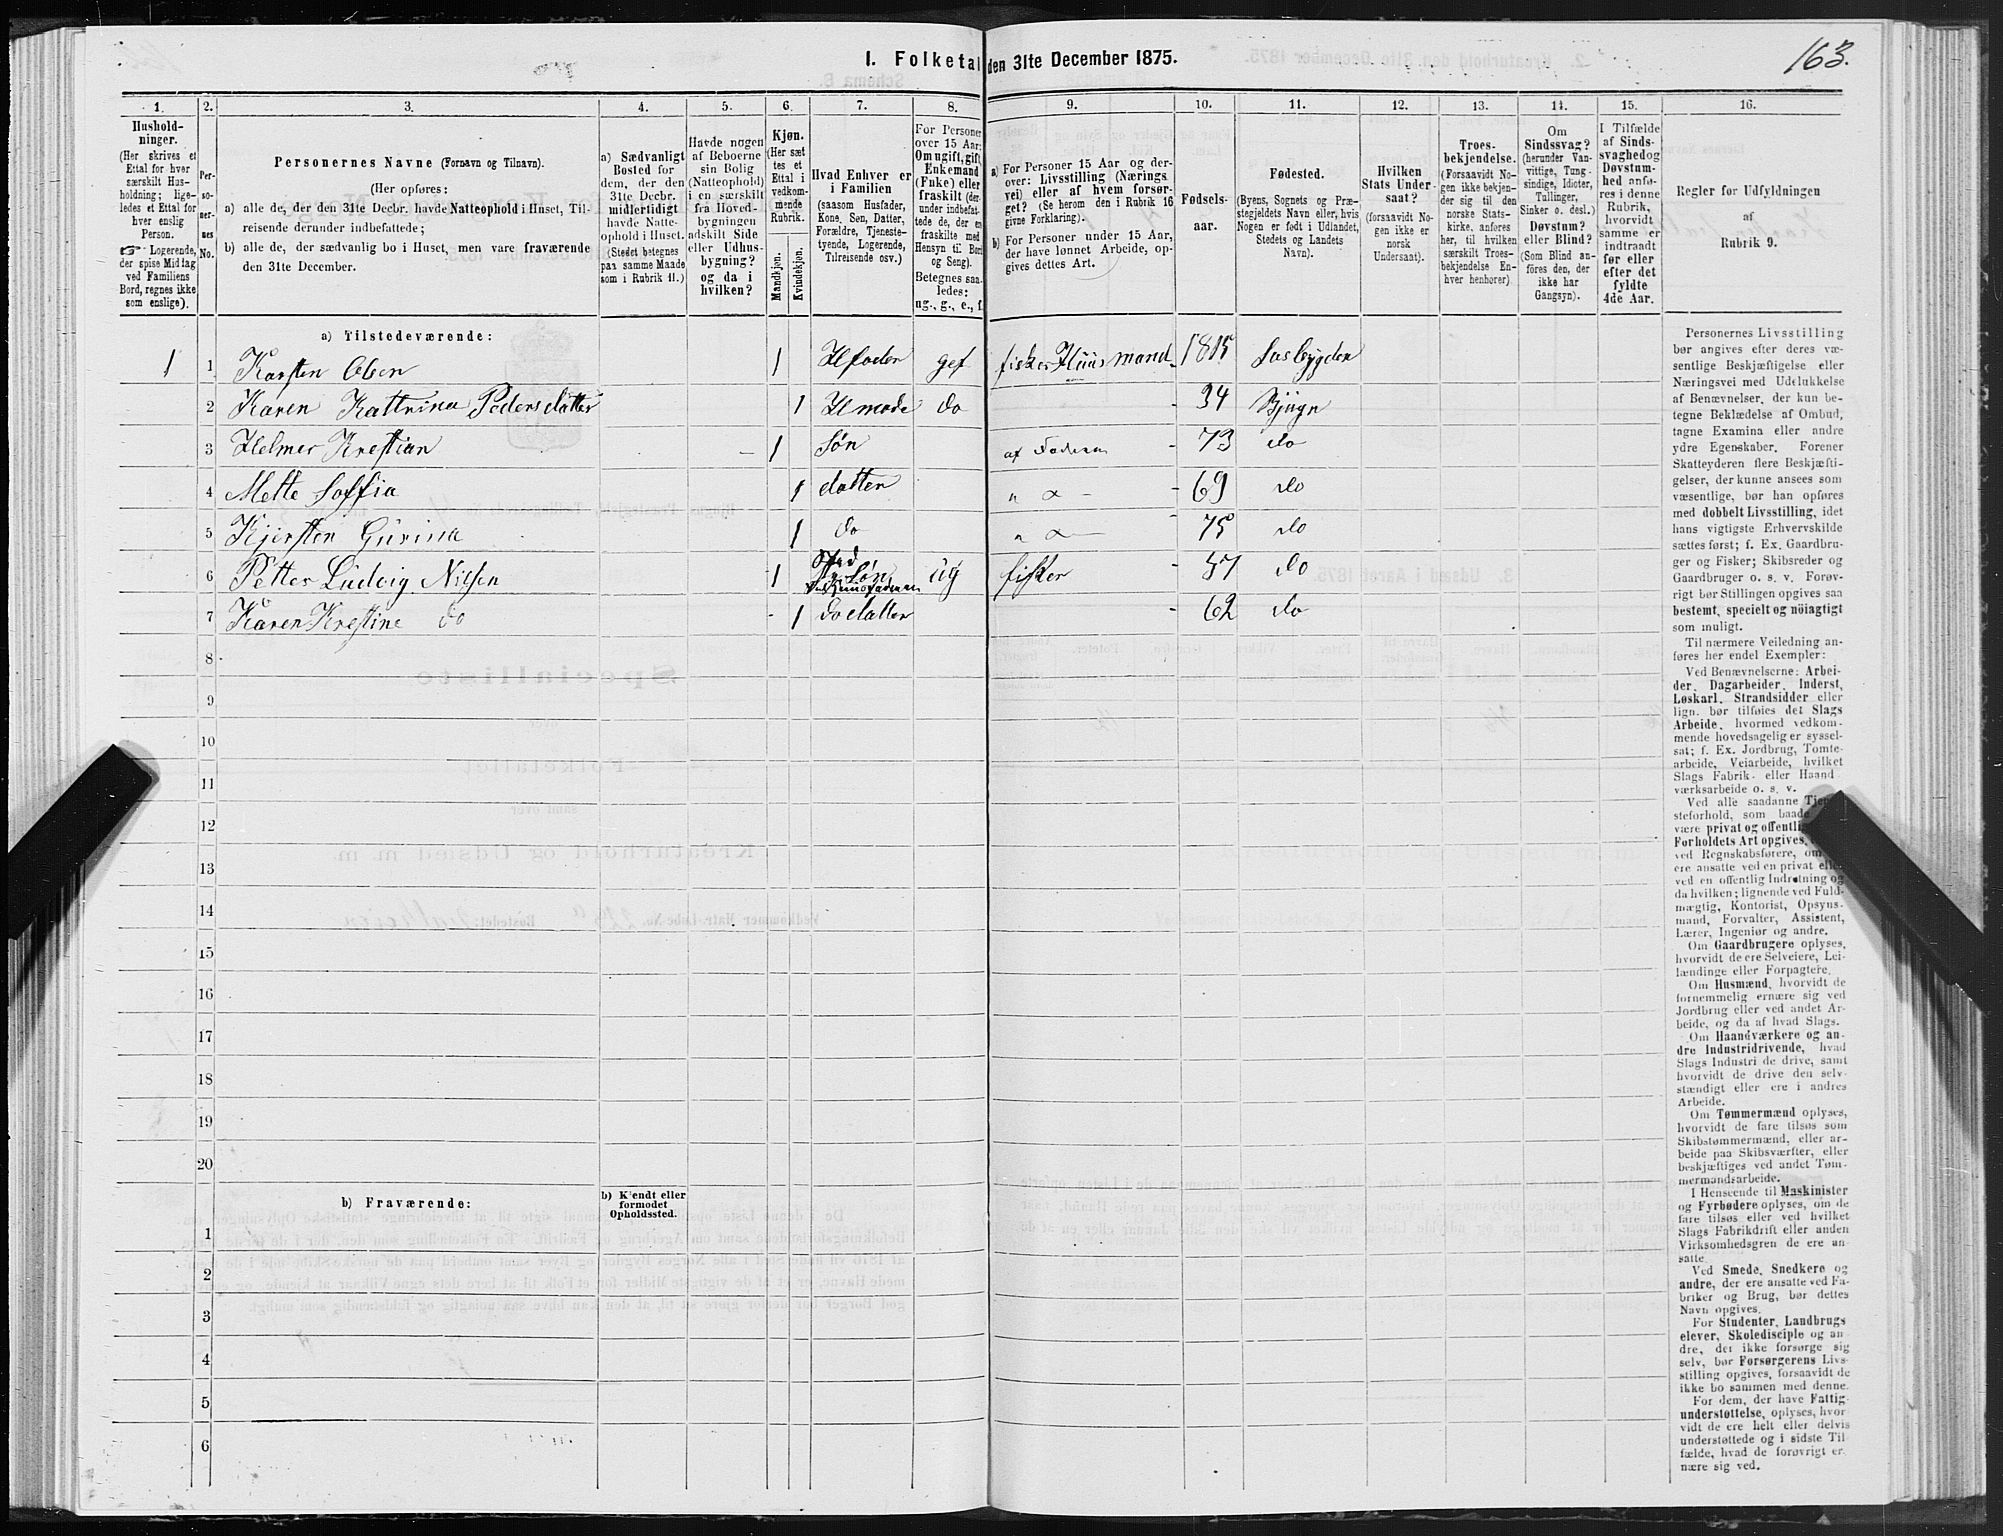 163.
I. Folketal den 31te December 1875.
1. 2. 3. 4. 5. 6. 7. 8. 9. 10. 11. 12. 13. 14. 15. 16.
Hushold-
ninger.
(Her skrives et
Ettal for hver
særskilt Hus-
holdning; lige-
ledes et Ettal for
hver enslig
Person.
☞ Logerende,
der spise Middag
ved Familiens
Bord, regnes ikke
som enslige).
Per-
so-
ner-
nes
No.
Personernes Navne (Fornavn og Tilnavn).
(Her opføres:
a) alle de, der den 31te Decbr. havde Natteophold i Huset, Til-
reisende derunder indbefattede;
b) alle de, der sædvanlig bo i Huset, men vare fraværende
den 31te December.
a) Sædvanligt
Bosted for
dem, der den
31te Decbr.
midlertidigt
havde Natte-
ophold i Huset.
(Stedet betegnes
paa samme Maade
som i Rubrik 11.)
Havde nogen
af Beboerne
sin Bolig
(Natteophold)
i en særskilt
fra Hoved-
bygningen
adskilt Side
eller Udhus-
bygning?
og da i
hvilken?
Kjøn.
(Her sæt
tes et
Ettal i
vedkom-
mende
Rubrik.
Mandkjøn.
Kvindekjøn.
Hvad Enhver er
i Familien
(saasom Husfader,
Kone, Søn, Datter,
Forældre, Tjeneste-
tyende, Logerende,
Tilreisende osv.)
For Personer
over 15 Aar:
Om ugift, gift
Enkemand
(Enke) eller
fraskilt (der-
under indbefat-
tede de, der er
fraskilte med
Hensyn til Bord
og Seng).
Betegnes saa-
ledes:
ug., g., e., f.
a) For Personer 15 Aar og der-
over: Livsstilling (Nærings
vei) eller af hvem forsør-
get? (Se herom den i Rubrik 16
givne Forklaring).
b) For Personer under 15 Aar,
der have lønnet Arbeide, op-
gives dettes Art.
Fødsels-
aar.
Fødested.
(Byens, Sognets og Præ-
stegjeldets Navn eller, hvis
Nogen er født i Udlandet,
Stedets og Landets
Navn).
Hvilken
Stats Under-
saat?
(forsaavidt No-
gen ikke er
norsk
Undersaat).
Troes-
bekjendelse.
(Forsaavidt No-
gen ikke bekjen-
der sig til den
norske Stats-
kirke, anføres
her, til hvilken
særskilt Troes-
bekjendelse En-
hver henhører).
Om
Sindssvag?
(herunder Van-
vittige, Tung-
sindige, Idioter,
Tullinger,
Sinker o. desl.)
Døvstum?
eller Blind?
(Som Blind an-
føres den, der
ikke har
Gangsyn).
I Tilfælde
af Sinds-
svaghed og
Døvstum-
hed anfø-
res i denne
Rubrik,
hvorvidt
samme er
indtraadt
før eller
efter det
fyldte
4de Aar.
Regler for Udfyldningen
af
Rubrik 9.
a) Tilstedeværende:
1 1 Karsten Olsen 1 Hfader gef fisker Huusmand 1815
2 Karen Kattrina Pedersdatter 1 Hmode do 34 Bjugn
3 Helmer Krestian 1 Søn af Faderen 73 do
4 Mette Soffia 1 datter 69 do
5 Kjersten Gurina 1 do 75 do
6 Petter Ludvig Nilsen 1 Søn ug fisker 57 do
7 Karen Krestine do 1 do datter 62 do
8
9
10
11
12
13
14
15
16
17
18
19
20
b) Fraværende:
b) Kjendt eller
formodet
Opholdssted.
1
2
3
4
5
6
Personernes Livsstilling
bør angives efter deres væ-
sentlige Beskjæftigelse eller
Næringsvei med Udelukkelse
af Benævnelser, der kun be-
tegne Beklædelse af Ombud,
tagne Examina eller andre
ydre Egenskaber. Forener
Skatteyderen flere Beskjæfti-
gelser, der kunne ansees som
væsentlige, bør han opføres
med dobbelt Livsstilling, idet
hans vigtigste Erhvervskilde
sættes først; f. Ex. Gaardbru-
ger og Fisker; Skibsreder og
Gaardbruger o. s. v. Forøv-
rigt bør Stillingen opgives saa
bestemt, specielt og nöiagtigt
som muligt.
Til nærmere Veiledning an-
føres her endel Exempler:
Ved Benævnelserne: Arbei-
der, Dagarbeider, Inderst,
Løskarl, Strandsidder eller
lign. bør tilføies det Slags
Arbeide, hvormed vedkom-
mende hovedsagelig er syssel-
sat; f. Ex. Jordbrug, Tomte-
arbeide, Veiarbeide, hvilket
Slags Fabrik- eller Haand
værksarbeide o. s. v.
Ved alle saadanne
steforhold, som baade
være privat og offentlig
Forholdets Art opgives,
ved Regnskabsførere, om
ere ansatte ved en privat eller
ved en offentlig Indretning og
da hvilken; lignende ved Fuld-
mægtig, Kontorist, Opsyns-
mand, Forvalter, Assistent,
Lærer, Ingeniør og andre.
Om Gaardbrugere oplyses,
hvorvidt de ere Selveiere, Lei-
lændinge eller Forpagtere.
Om Husmænd, hvorvidt de
fornemmelig ernære sig ved
Jordbrug eller ved andet Ar-
beide, og da af hvad Slags.
Om Haandværkere og an-
dre Industridrivende, hvad
Slags Industri de drive, samt
hvorvidt de drive den selv-
stændigt eller ere i andres
Arbeide.
Om Tømmermænd oplyses,
hvorvidt de fare tilsøs som
Skibstømmermænd, eller ar-
beide paa Skibsværfter, eller
beskjæftiges ved andet Tøm-
mermandsarbeide.
I Henseende til Maskinister
og Fyrbødere oplyses, om de
fare tilsøs eller ved hvilket
Slags Fabrikdrift eller anden
Virksomhedsgren de ere an-
satte.
Ved Smede, Snedkere og
andre, der ere ansatte ved Fa-
briker og Brug, bør dettes
Navn opgives.
For Studenter, Landbrugs
elever, Skoledisciple og an-
dre, der ikke forsørge sig
selv, bør Forsørgerens Livs-
stilling opgives, forsaavidt de
ikke bo sammen med denne.
For dem, der have Fattig-
understøttelse, oplyses, hvor-
vidt de ere helt eller delvis
understøttede og i sidste Til-
fælde, hvad de forøvrigt er-
nære sig ved.